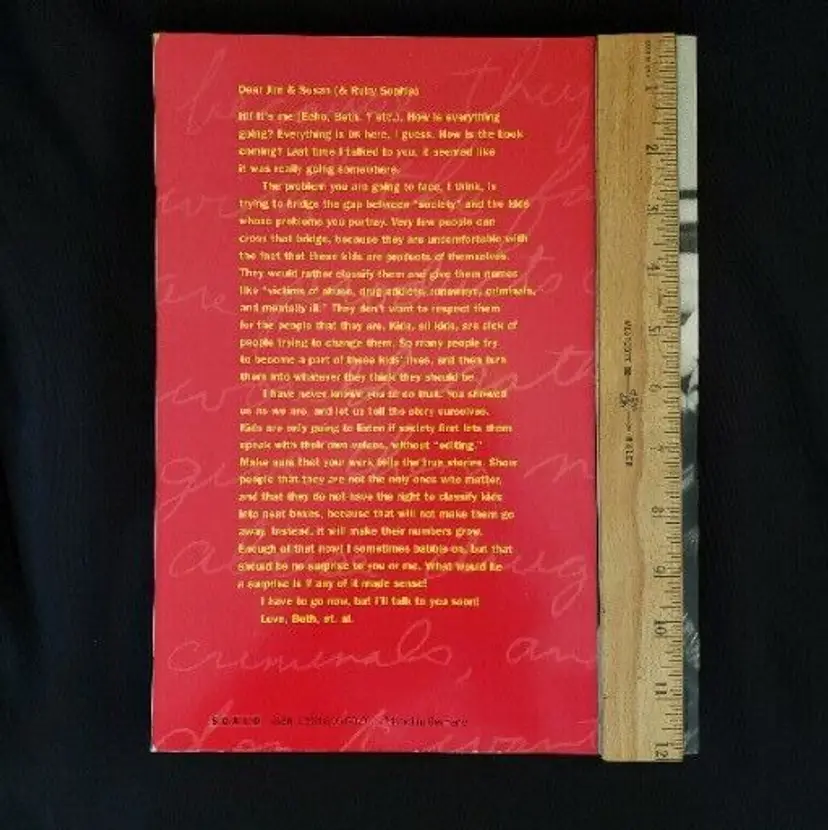 Dear Jim & Susan (& Ruby Sophie)
Hi! It's me (Echo, Beth, Y etc.). How is everything
going? Everything is OK here, I guess. How is the book
coming? Last time I talked to you, it seemed like
it was really going somewhere.
The problem you are going to face, I think, is
trying to bridge the gap between "society" and the kids
whose problems you portray. Very few people can
cross that bridge, because they are uncomfortable with
the fact that these kids are products of themselves.
They would rather classify them and give them names
like "victims of abuse, drug addicts, runaways, criminals,
and mentally ill." They don't want to respect them
for the people that they are. Kids, all kids, are sick of
people trying to change them. So many people try
to become a part of these kids' lives, and then turn
them into whatever they think they should be.
I have never known you to do that. You showed
us as we are, and let us tell the story ourselves.
Kids are only going to listen if society first lets them
speak with their own voices, without "editing."
Make sure that your work tells the true stories. Show
people that they are not the only ones who matter,
and that they do not have the right to classify kids
into neat boxes, because that will not make them go
away. Instead, it will make their numbers grow.
Enough of that now! I sometimes babble on, but that
should be no surprise to you or me. What would be
a surprise is if any of it made sense!
I have to go now, but I'll talk to you soon!
Love, Beth, et. al.
because they
are products
criminals, an
don't want
SCALO
Printed in Germany
WESTCOTT
RULER
2
3
4
5
6
8
10
11
12